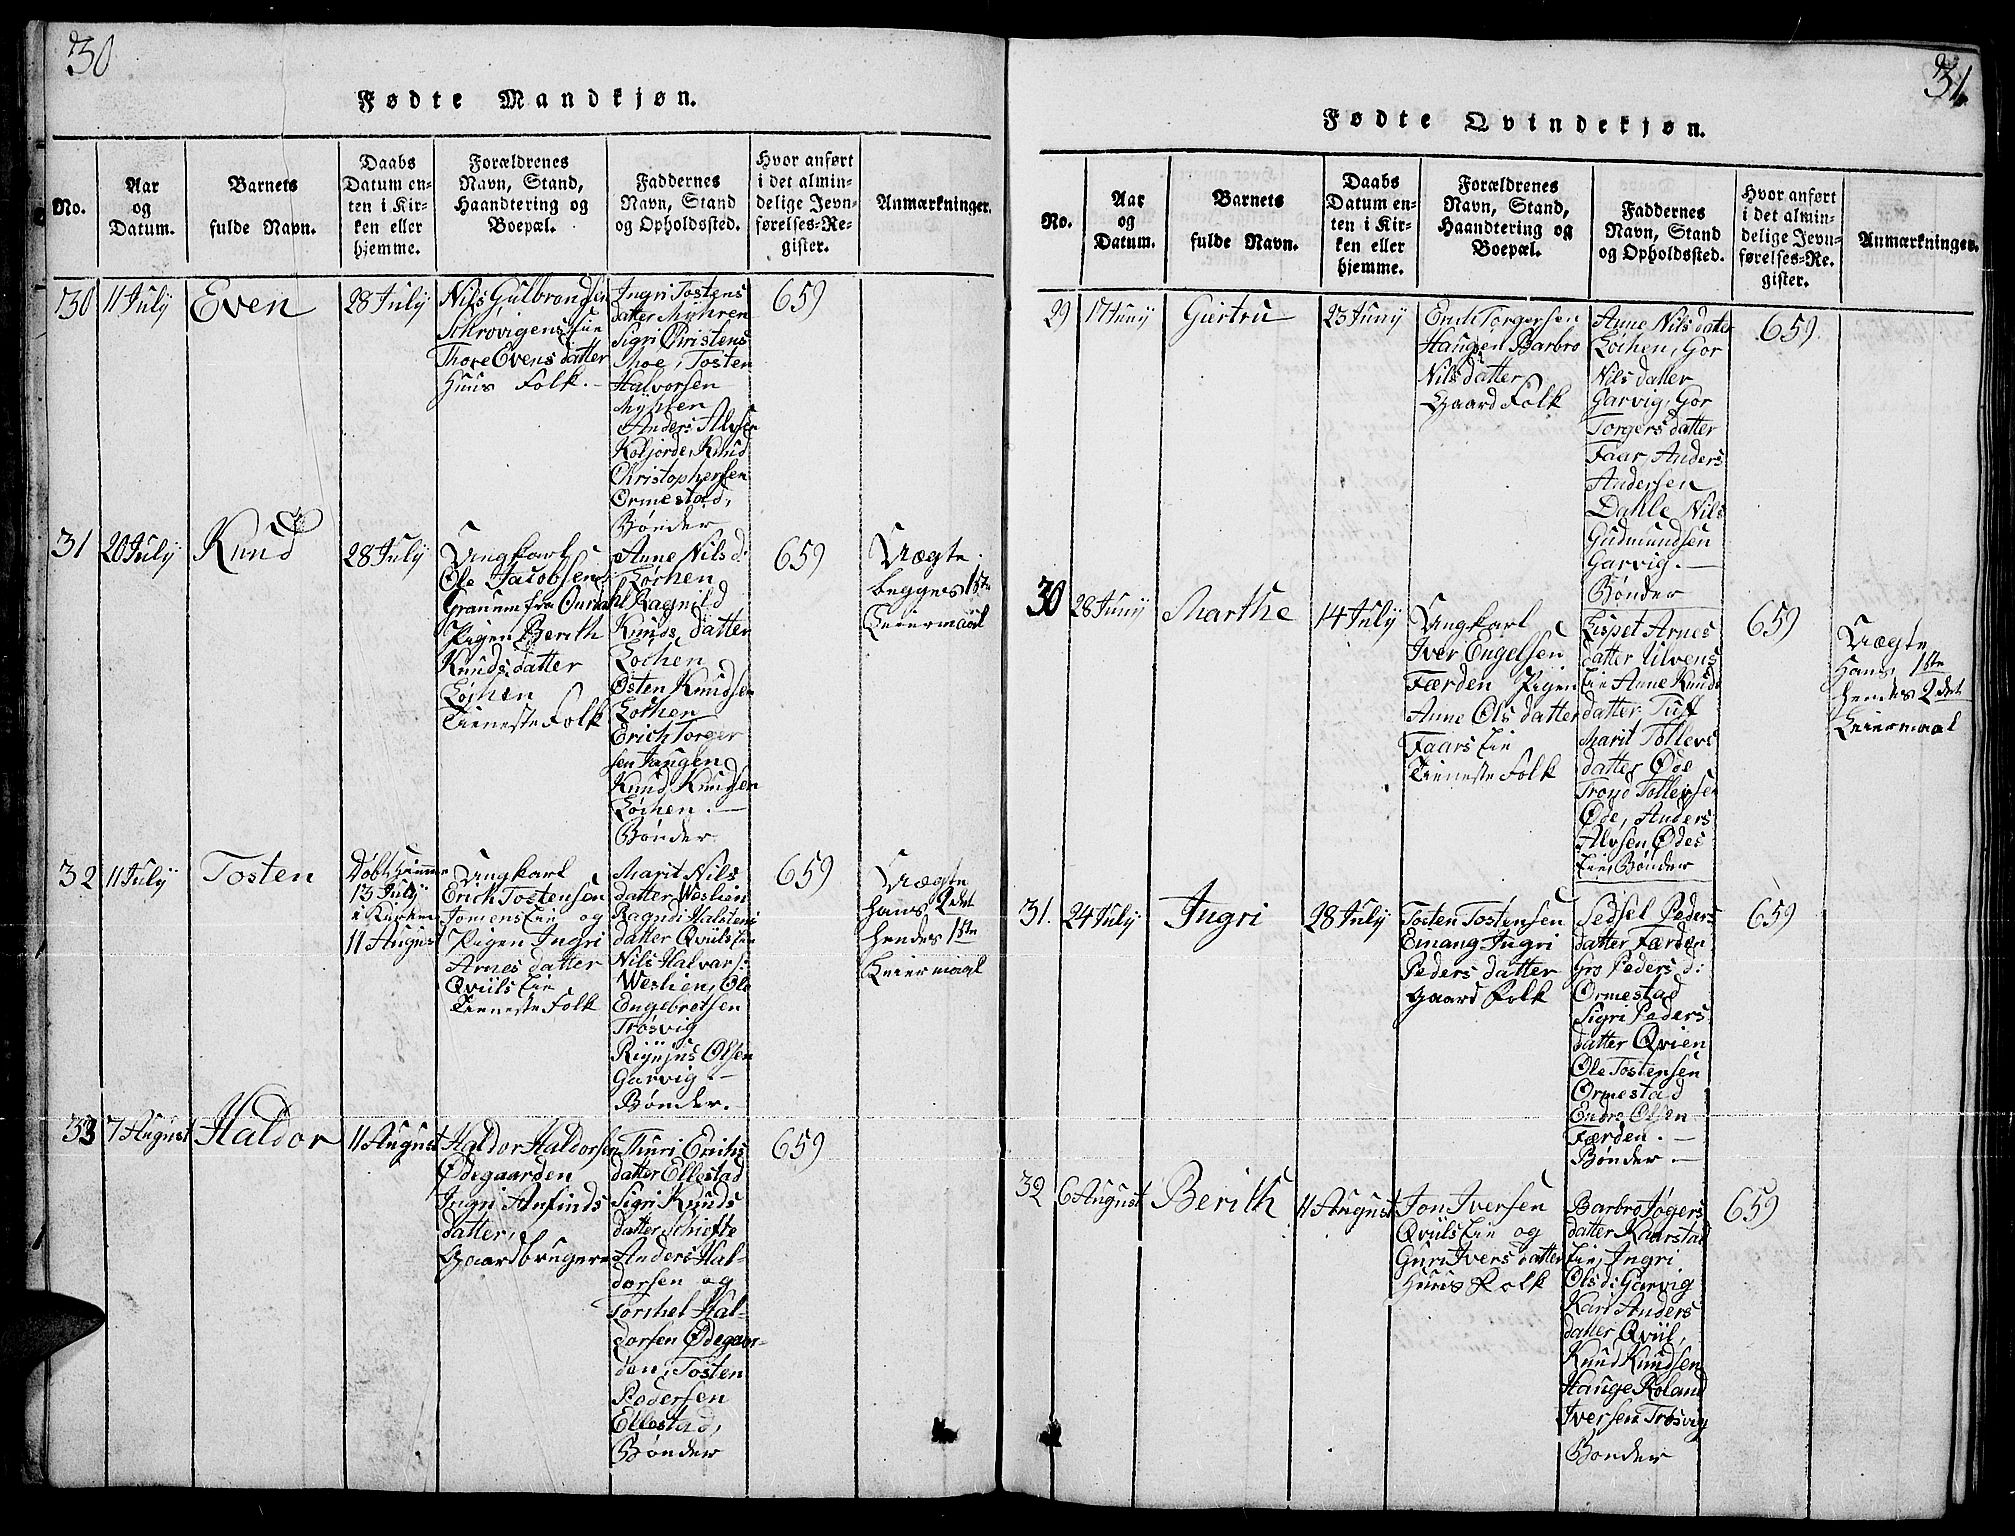 30
Fødte Mandkjøn.
No.
Aar
og
Datum.
Barnets
fulde Navn.
Daabs
Datum en-
ten i Kir-
ken eller
hjemme.
Forældrenes
Navn, Stand,
Haandtering og
Boepæl.
Faddernes
Navn, Stand
og Opholdssted.
Hvor anført
i det almin-
delige Jevn-
førelses-Re-
gister.
Anmærkninger.
30
11 July
Even
28 July
Nils Gulbrandsen
Skrovigens Eie
Thore Evens datter
Huus Folk.
Ingri Tostens
datter Myhren
Sigri Christens
Moe, Tosten
Halvorsen
Myhren
Anders Alvsen
Koljorde, Knud
Christophersen
Ormestad,
Bønder
659
31
20 July
Knud
28 July
Ungkarl
Ole Jacobsen
Granum fra Ourdahl
Pigen Berith
Knuds datter
Løchen
Tieneste Folk
Anne Nils d:
Løchen
Ragnild
Knuds datter
Lochen
Østen Knudsen
Lochen
Erich Torger
sen Haugen
Knud Knudsen
Løchen. —
Bønder
659
Uægte
begges 1ste
Leiermaal
32
11 July
Tosten
Døbt hiemme
13 July
i Kirken
11 August
Ungkarl
Erich Tostensen
Jomens Eie og
Pigen Ingri
Arnes datter
Qviils Eie
Tieneste Folk
Marit Nils
datter Weslien
Ragndi Halstens
datter Qviils Eie
Nils Halvars:
Weslien, Ole
Engebretsen
Trøsvig
Olsen
Garvig. —
Bønder.
659
Uægte
hans 2det
hendes 1ste
Leiermaal
33
7 August
Haldor
11 August
Haldor Haldorsen
Ødegaarden
Ingri Anfinds
datter,
Gaardbrugere
Thuri Erichs
datter Ellestad
Sigri Knuds
datter Schiefte
Anders Hal-
dorsen og
Torchel Hal-
dorsen Ødegaar-
den, Tosten
Pedersen
Ellestad,
Bønder
659
31
Fødte Qvindekjøn.
No.
Aar
og
Datum.
Barnets
fulde Navn.
Daabs
Datum en-
ten i Kir-
ken eller
hjemme.
Forældrenes
Navn, Stand,
Haandtering og
Boepæl.
Faddernes
Navn, Stand
og Opholdssted.
Hvor anført
i det almin-
delige Jevn-
førelses-Re-
gister.
Anmærkninger.
29
17 Juny
Giertru
23 Juny
Erich Torgersen
Haugen Barbro
Nils datter
Gaard Folk
Anne Nils datter
Lochen, Gor
Nils datter
Garvig, Gor
Torgers datter
Faar, Anders
Andersen
Dahle Nils
Gudmundsen
Garvig. —
Bønder
659
30
28 Juny
Marthe
14 July
Ungkarl
Iver Engelsen
Færden Pigen
Anne Ols datter
Faars Eie
Tieneste Folk
Lispet Arnes
datter Ulvens
Eie Anne Knuds
datter Tuf
Marit Tollevs
datter Øde
Trond Tollevsen
Øde, Anders
Alvsen Ødes
Eie, Bønder
659
Uægte
hans 1ste
hendes 2det
Leiermaal
31.
24 July
Ingri
28 July
Tosten Tostensen
Emang Ingri
Peders datter
Gaard Folk
Sedsel Peders
datter Færden
Gro Peders d:
Ormestad
Sigri Peders
datter Qvien
Ole Tostensen
Ormestad
Endre Olsen
Færden. —
Bønder —
659
32
6 August
Berith
11 August
Jon Iversen
Qviils Eie og
Guri Ivers datter
Huus Folk
Barbro Jøgers
datter Kaarstad
Eie, Ingri
Olsd: Garvig
Kari Anders
datter Qviil,
Knud Knudsen
Hauge Roland
Iversen Trøsvig
Bønder
659